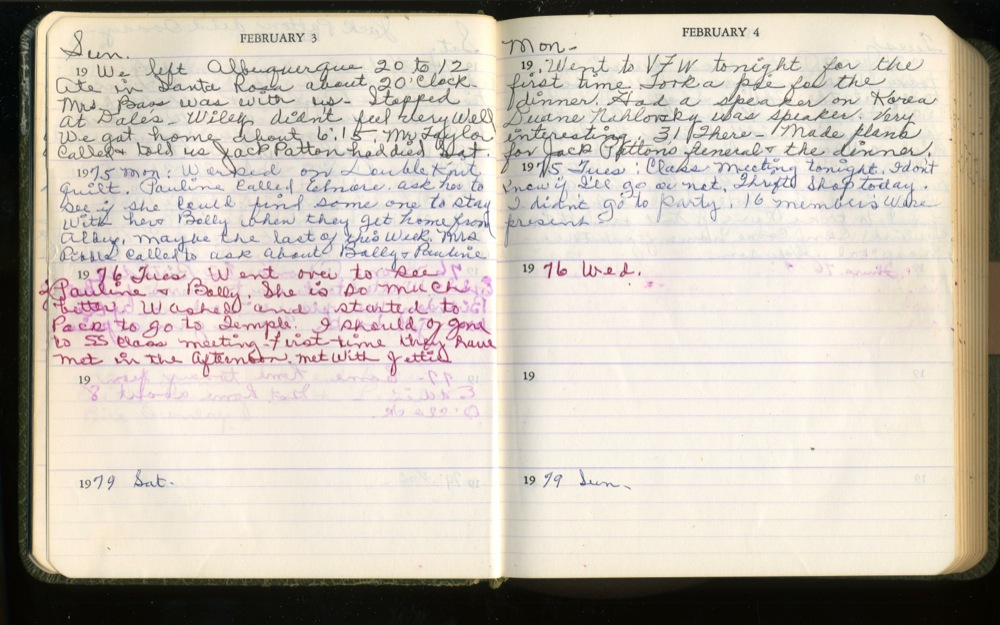 FEBRUARY 3
Sun.
19 We left Albuquerque 20 to 12
Ate in Santa Rosa about 20'clock
Mrs. Bass was with us - Stopped
at Dales - Wiley didn't feel very well
We got home about 6:15. Mr Taylor
called & told us Jack Patton had died Sat.
1975 Mon: Worked on Double Knit
quilt. Pauline called Elnore. ask her to
see if she could find some one to stay
with her & Bolly when they get home from
Albu. maybe the last of this week. Mrs
called to ask about Bolly & Pauline
1976 Tues Went over to see
Pauline & Bolly. She is so much
better. Washed and started to
Pack to go to Temple. I should of gone
to SS class meeting - first time they have
met in the afternoon. met with Jettie
19
1979 Sat.
FEBRUARY 4
Mon-
19 Went to VFW tonight for the
first time. Took a pie for the
dinner. Had a speaker on Korea
Duane Kahlovsky was speaker. Very
interesting. 31 There - Made plans
for Jack Pattons funeral & the dinner.
1975 Tues: Class Meeting tonight. I don't
know if I'll go or not. Thrift Shop today.
I didn't go to party. 16 members were
present
1976 Wed.
19
1979 Sun.